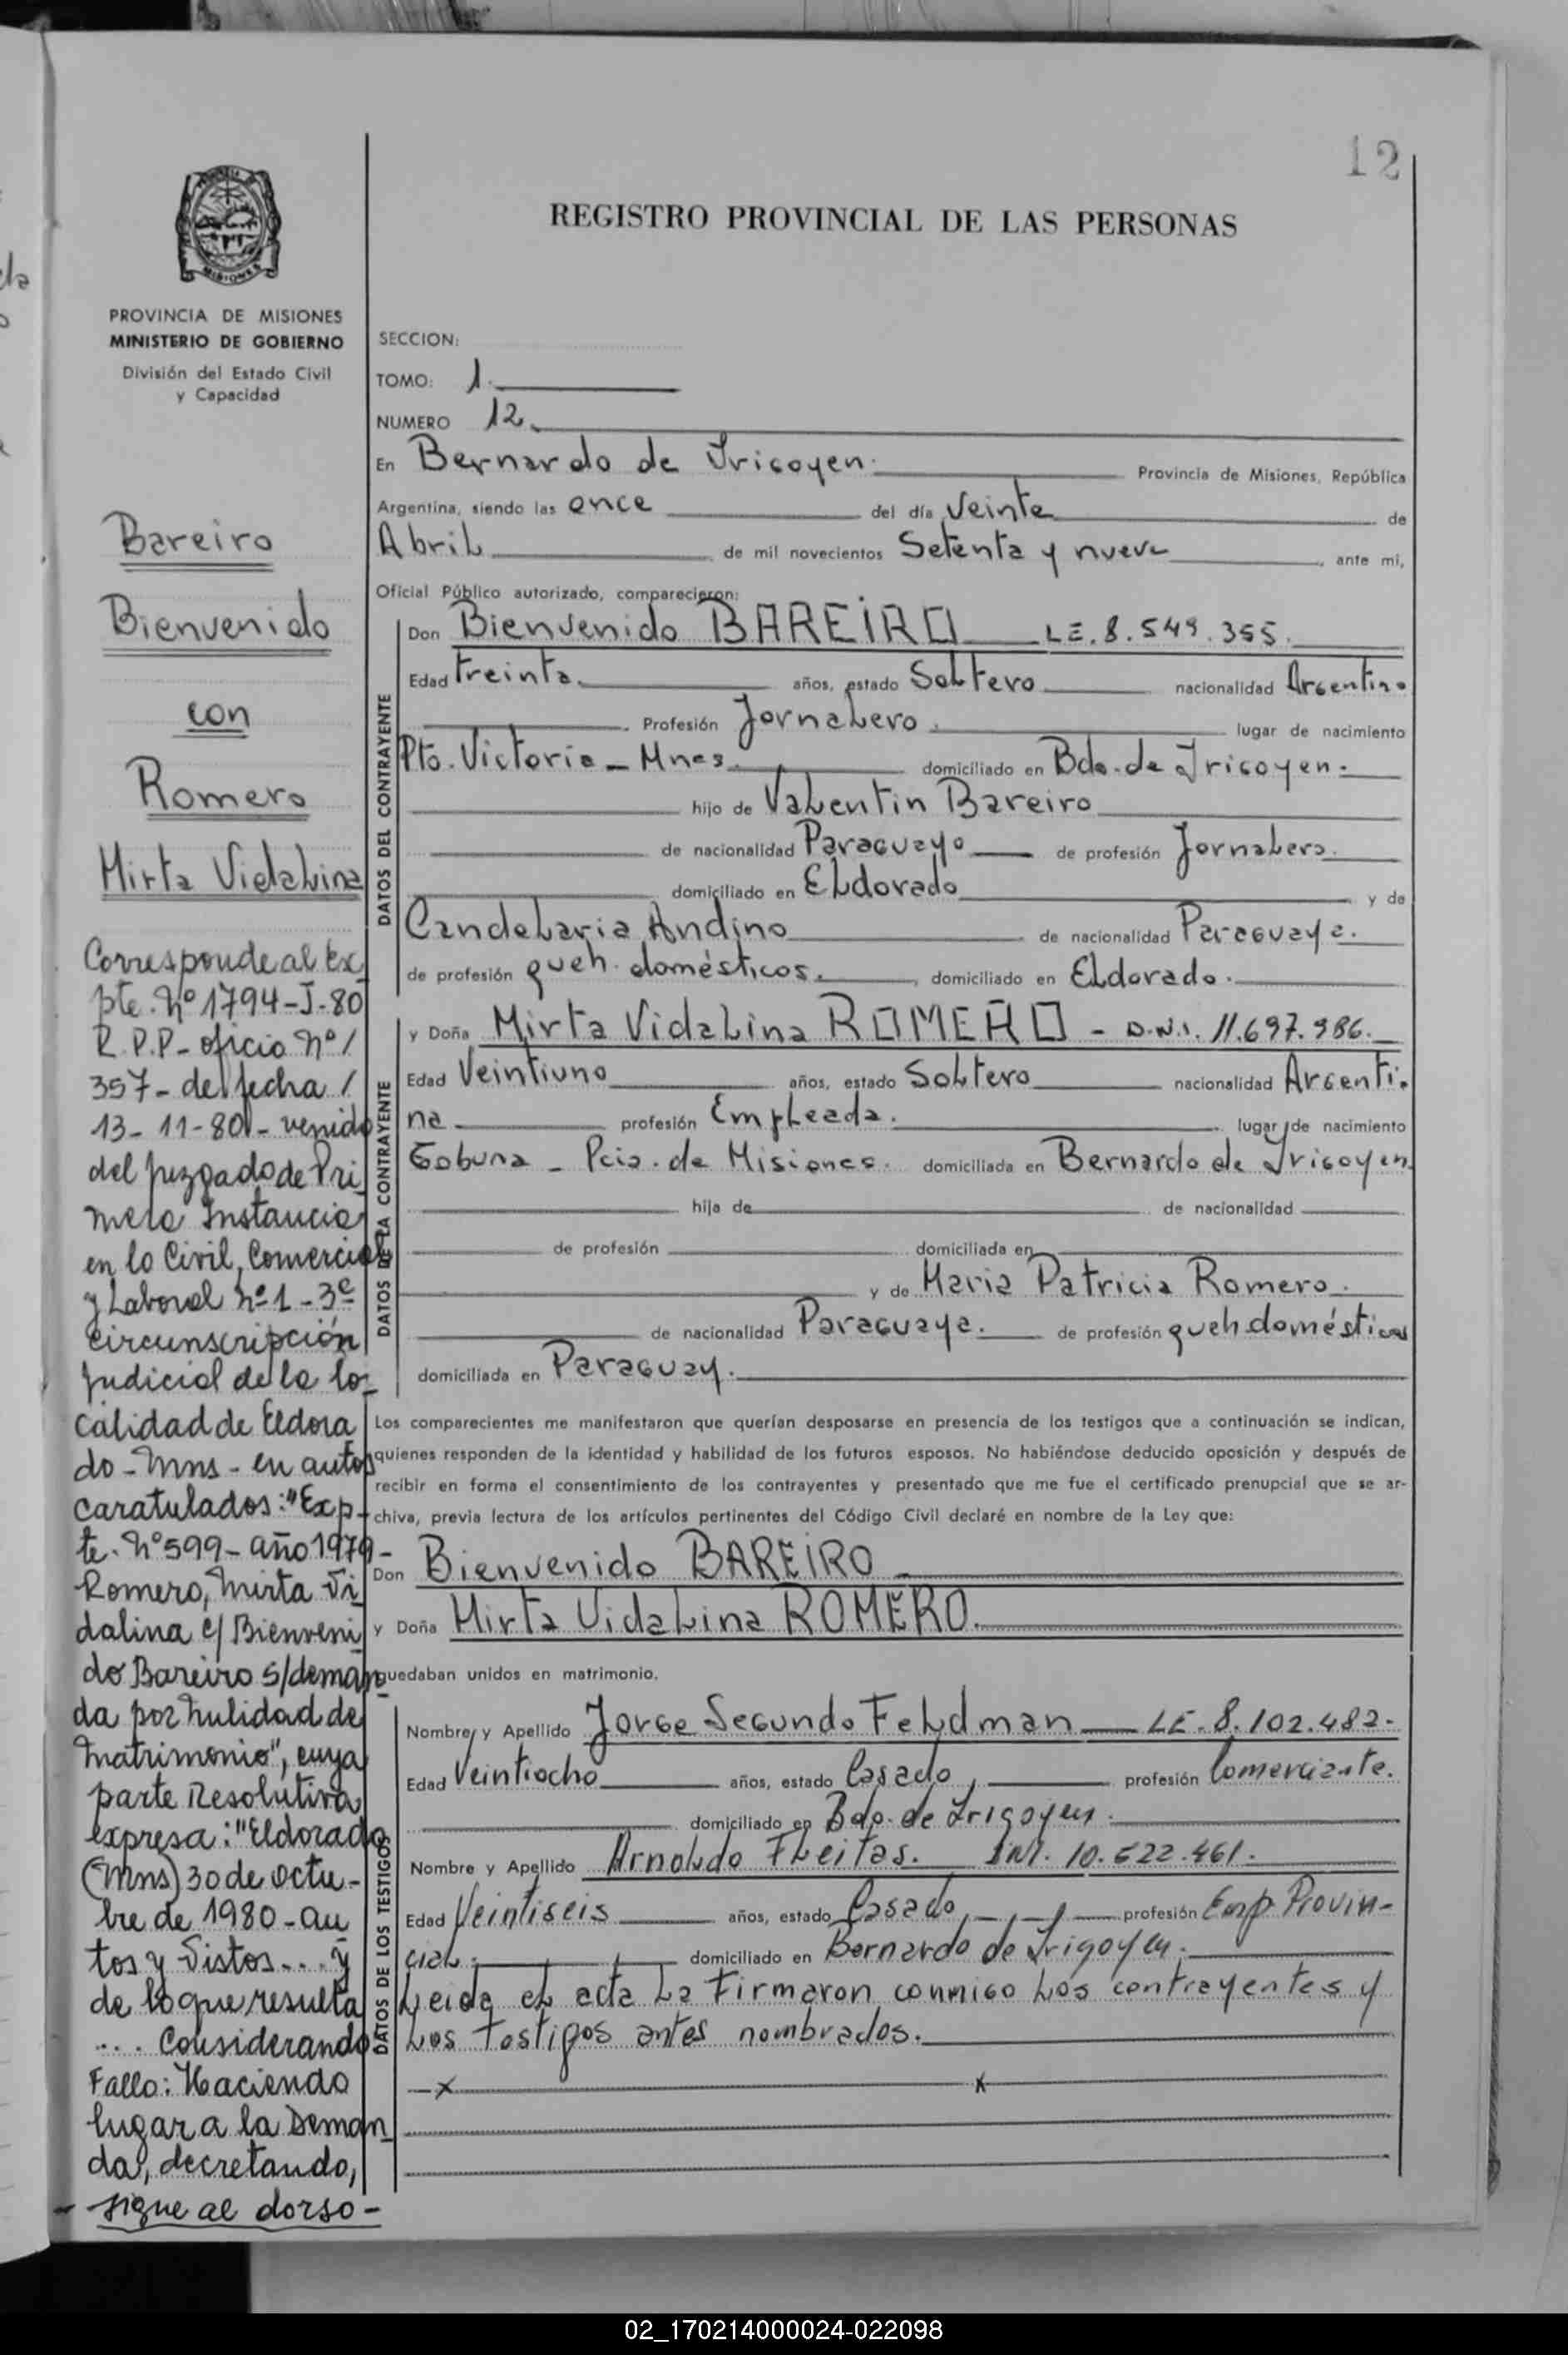 12
REGISTRO PROVINCIAL DE LAS PERSONAS
MISIONES
PROVINCIA DE MISIONES
MINISTERIO DE GOBIERNO
División del Estado Civil
y Capacidad
Bareiro
Bienvenido
con
Romero
Mirta Vidalina
Corresponde al Ex-
pte. Nº 1794-J-80
R.P.P- oficio nº/
357- de fecha /
13-11-80- venido
del juzgado de Pri
mera Instancia
en lo Civil, Comercial
y Laboral nº 1 - 3ª
circunscripción
judicial de la lo-
calidad de Eldora
do - Mns - en autos
caratulados: "Exp-
te. Nº 599- año 1979-
Romero, Mirta Vi
dalina c/ Bienveni
do Bareiro s/deman-
da por nulidad de
matrimonio", cuya
parte Resolutiva
expresa: "Eldorado
(Mns) 30 de octu-
bre de 1980- au
tos y Vistos.... y
de lo que resulta
... Considerando
Fallo: Haciendo
lugar a la Deman
da, decretando,
- sigue al dorso -
SECCION:
TOMO: 1.
NUMERO 12.
En Bernardo de Irigoyen. Provincia de Misiones, República
Argentina, siendo las once del día Veinte de
Abril de mil novecientos Setenta y nueve, ante mi,
Oficial Público autorizado, comparecieron:
DATOS DEL CONTRAYENTE
Don Bienvenido BAREIRO LE. 8.549.355.
Edad treinta. años, estado Soltero nacionalidad Argentino
. Profesión Jornalero. lugar de nacimiento
Pto. Victoria - Mnes. domiciliado en Bdo. de Irigoyen.
hijo de Valentin Bareiro
de nacionalidad Paraguayo de profesión Jornalero.
domiciliado en Eldorado y de
Candelaria Andino de nacionalidad Paraguaya.
de profesión queh. domésticos., domiciliado en Eldorado.
DATOS DE LA CONTRAYENTE
y Doña Mirta Vidalina ROMERO - D.N.I. 11.697.986.
Edad Veintiuno años, estado Soltero nacionalidad Argenti-
na profesión Empleada. lugar de nacimiento
Tobuna - Pcia. de Misiones. domiciliada en Bernardo de Irigoyen.
hija de de nacionalidad
de profesión domiciliada en
y de Maria Patricia Romero.
de nacionalidad Paraguaya. de profesión queh domésticos
domiciliada en Paraguay.
Los comparecientes me manifestaron que querían desposarse en presencia de los testigos que a continuación se indican,
quienes responden de la identidad y habilidad de los futuros esposos. No habiéndose deducido oposición y después de
recibir en forma el consentimiento de los contrayentes y presentado que me fue el certificado prenupcial que se ar-
chiva, previa lectura de los artículos pertinentes del Código Civil declaré en nombre de la Ley que:
Don Bienvenido BAREIRO
y Doña Mirta Vidalina ROMERO.
quedaban unidos en matrimonio.
DATOS DE LOS TESTIGOS
Nombre y Apellido Jorge Segundo Feldman LE. 8.102.482-
Edad Veintiocho años, estado Casado, profesión Comerciante.
domiciliado en Bdo. de Irigoyen.
Nombre y Apellido Arnoldo Fleitas. DNI. 10.622.461.
Edad Veintiseis años, estado Casado, profesión Emp. Provin-
cial. domiciliado en Bernardo de Irigoyen.
Leida el acta la Firmaron conmigo los contrayentes y
los testigos antes nombrados.
02_170214000024-022098